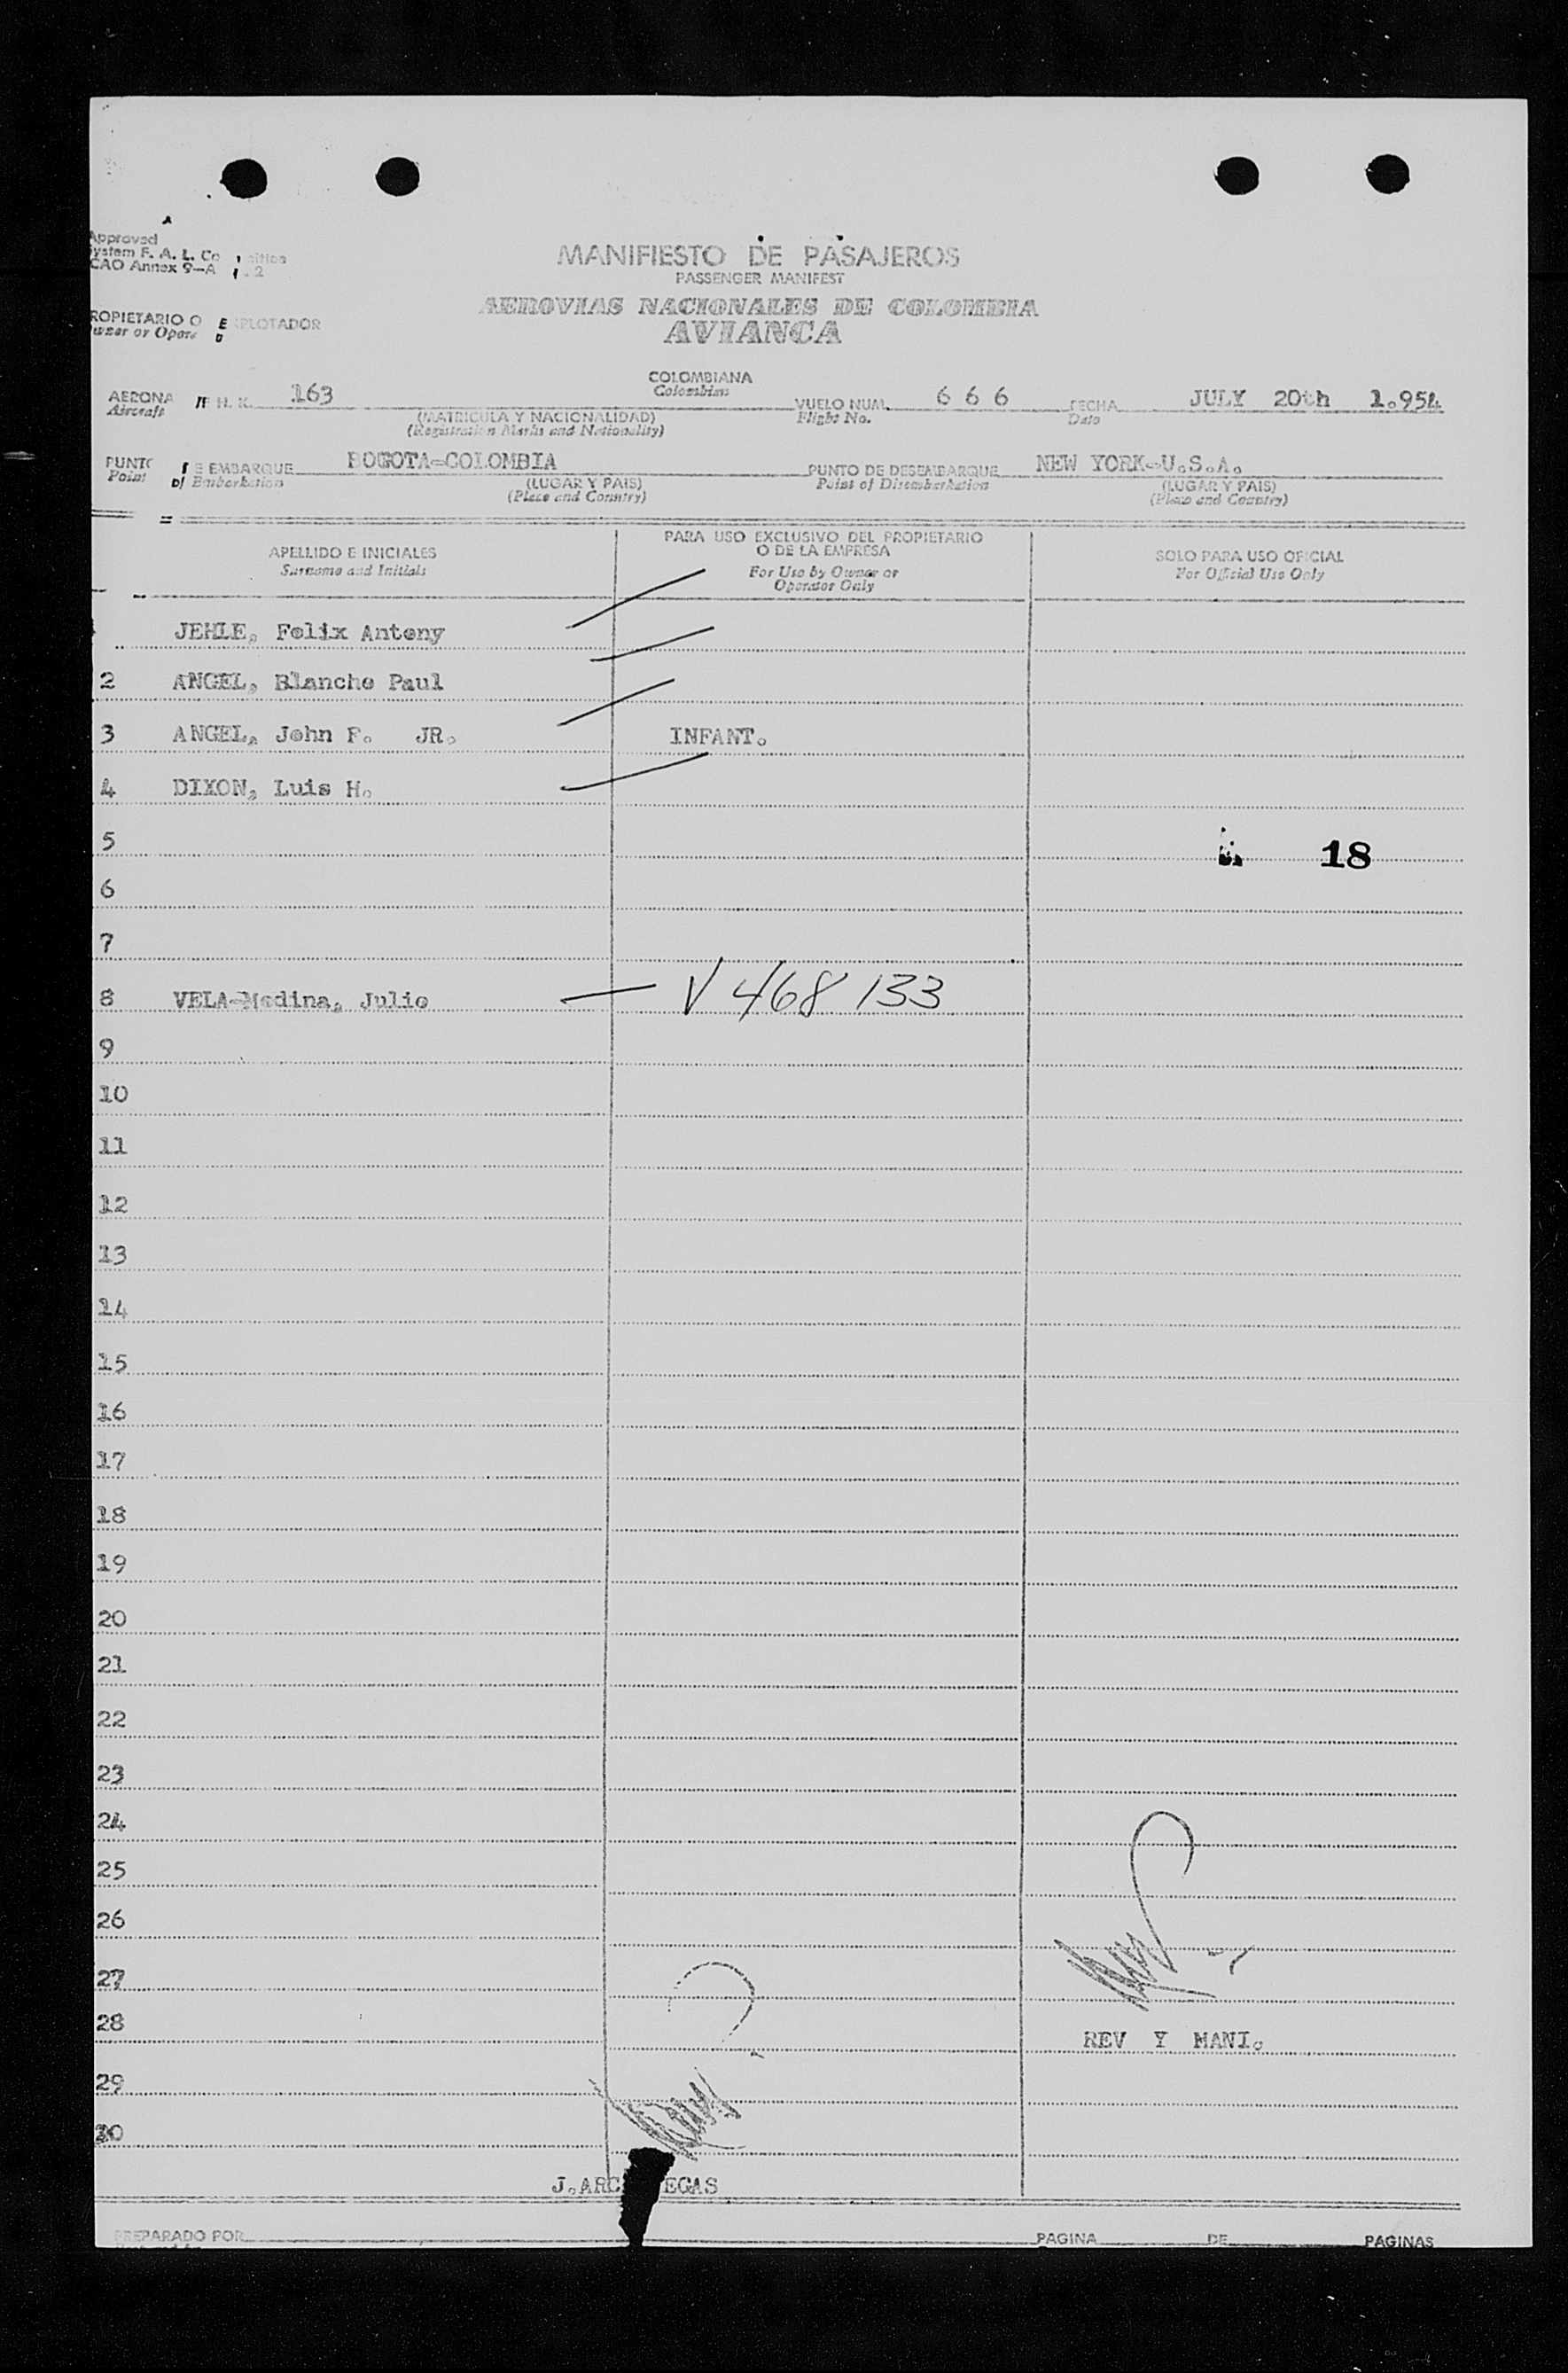 Approved
System F. A. L. Co
ICAO Annex 9—A . 2
MANIFIESTO DE PASAJEROS
PASSENGER MANIFEST
AEROVIAS NACIONALES DE COLOMBIA
AVIANCA
ROPIETARIO O EXPLOTADOR
wner or Oper
COLOMBIANA
Colombian
AERONA H. K. 163 VUELO NUM. 6 6 6 FECHA JULY 20th 1.954
Aircraft (MATRICULA Y NACIONALIDAD) Flight No. Date
(Registration Marks and Nationality)
PUNTO DE EMBARQUE BOGOTA-COLOMBIA PUNTO DE DESEMBARQUE NEW YORK-U.S.A.
Point of Embarkation (LUGAR Y PAIS) Point of Disembarkation (LUGAR Y PAIS)
(Place and Country) (Place and Country)
APELLIDO E INICIALES PARA USO EXCLUSIVO DEL PROPIETARIO O DE LA EMPRESA SOLO PARA USO OFICIAL
Surname and Initials For Use by Owner or Operator Only For Official Use Only
JEHLE, Felix Antony
2 ANGEL, Blanche Paul
3 ANGEL, John P. JR. INFANT.
4 DIXON, Luis H.
5 18
6
7
8 VELA-Medina, Julio V 468 133
9
10
11
12
13
14
15
16
17
18
19
20
21
22
23
24
25
26
27
28 REV Y MANI.
29
30
J.ARC EGAS
PREPARADO POR PAGINA DE PAGINAS